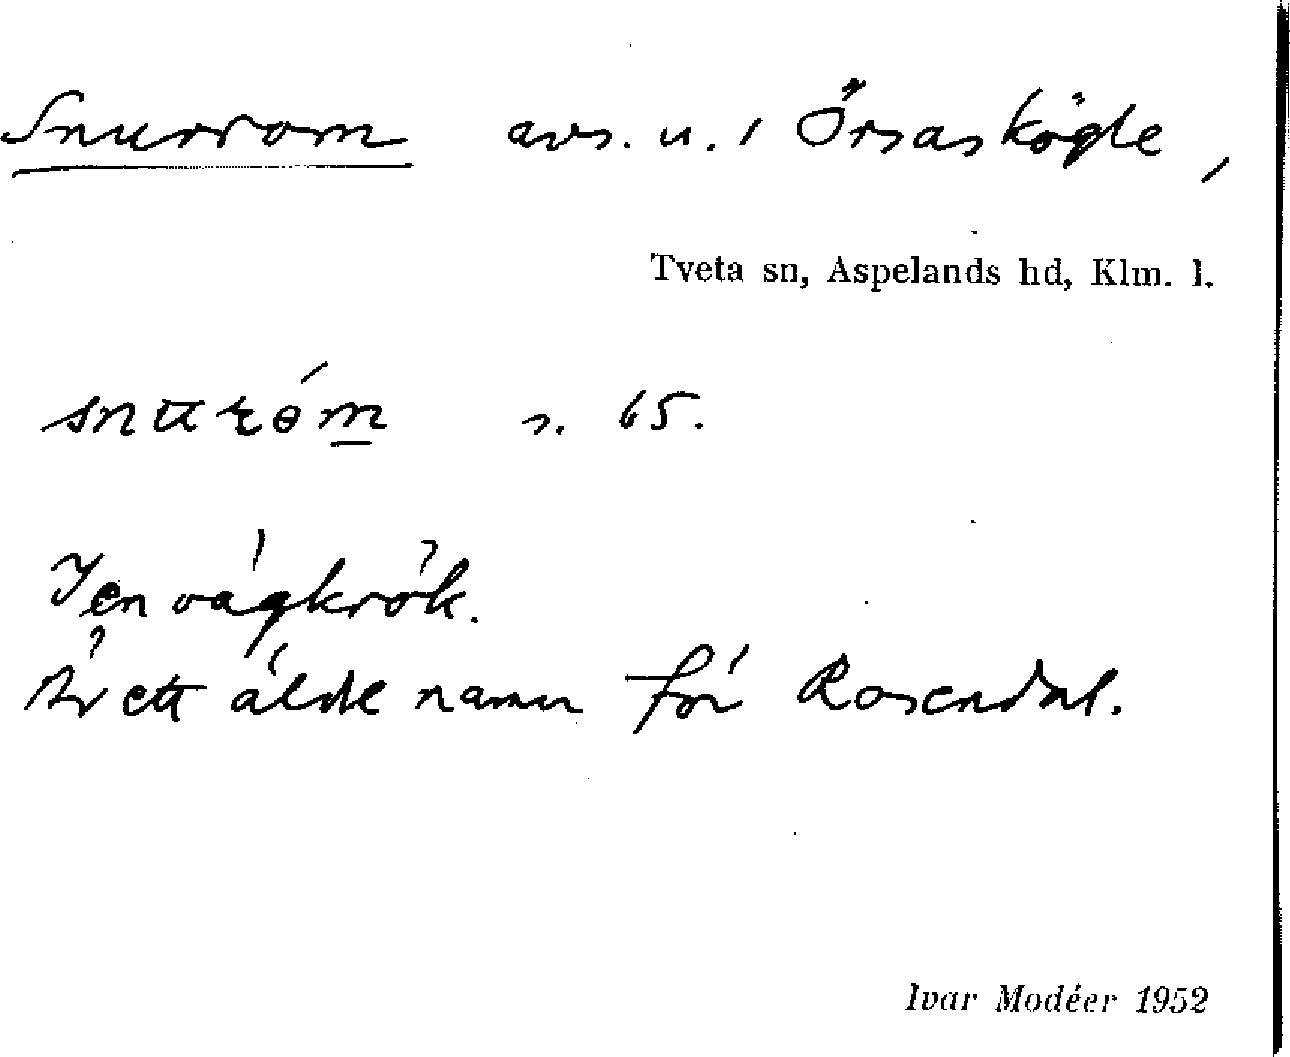 Snurrom avs. u. i Örsaskögle,
Tveta sn, Aspelands hd, Klm. l.
s. 65.
I en vägkrök.
Är ett äldre namn för Rosendal.
Ivar Modéer 1952